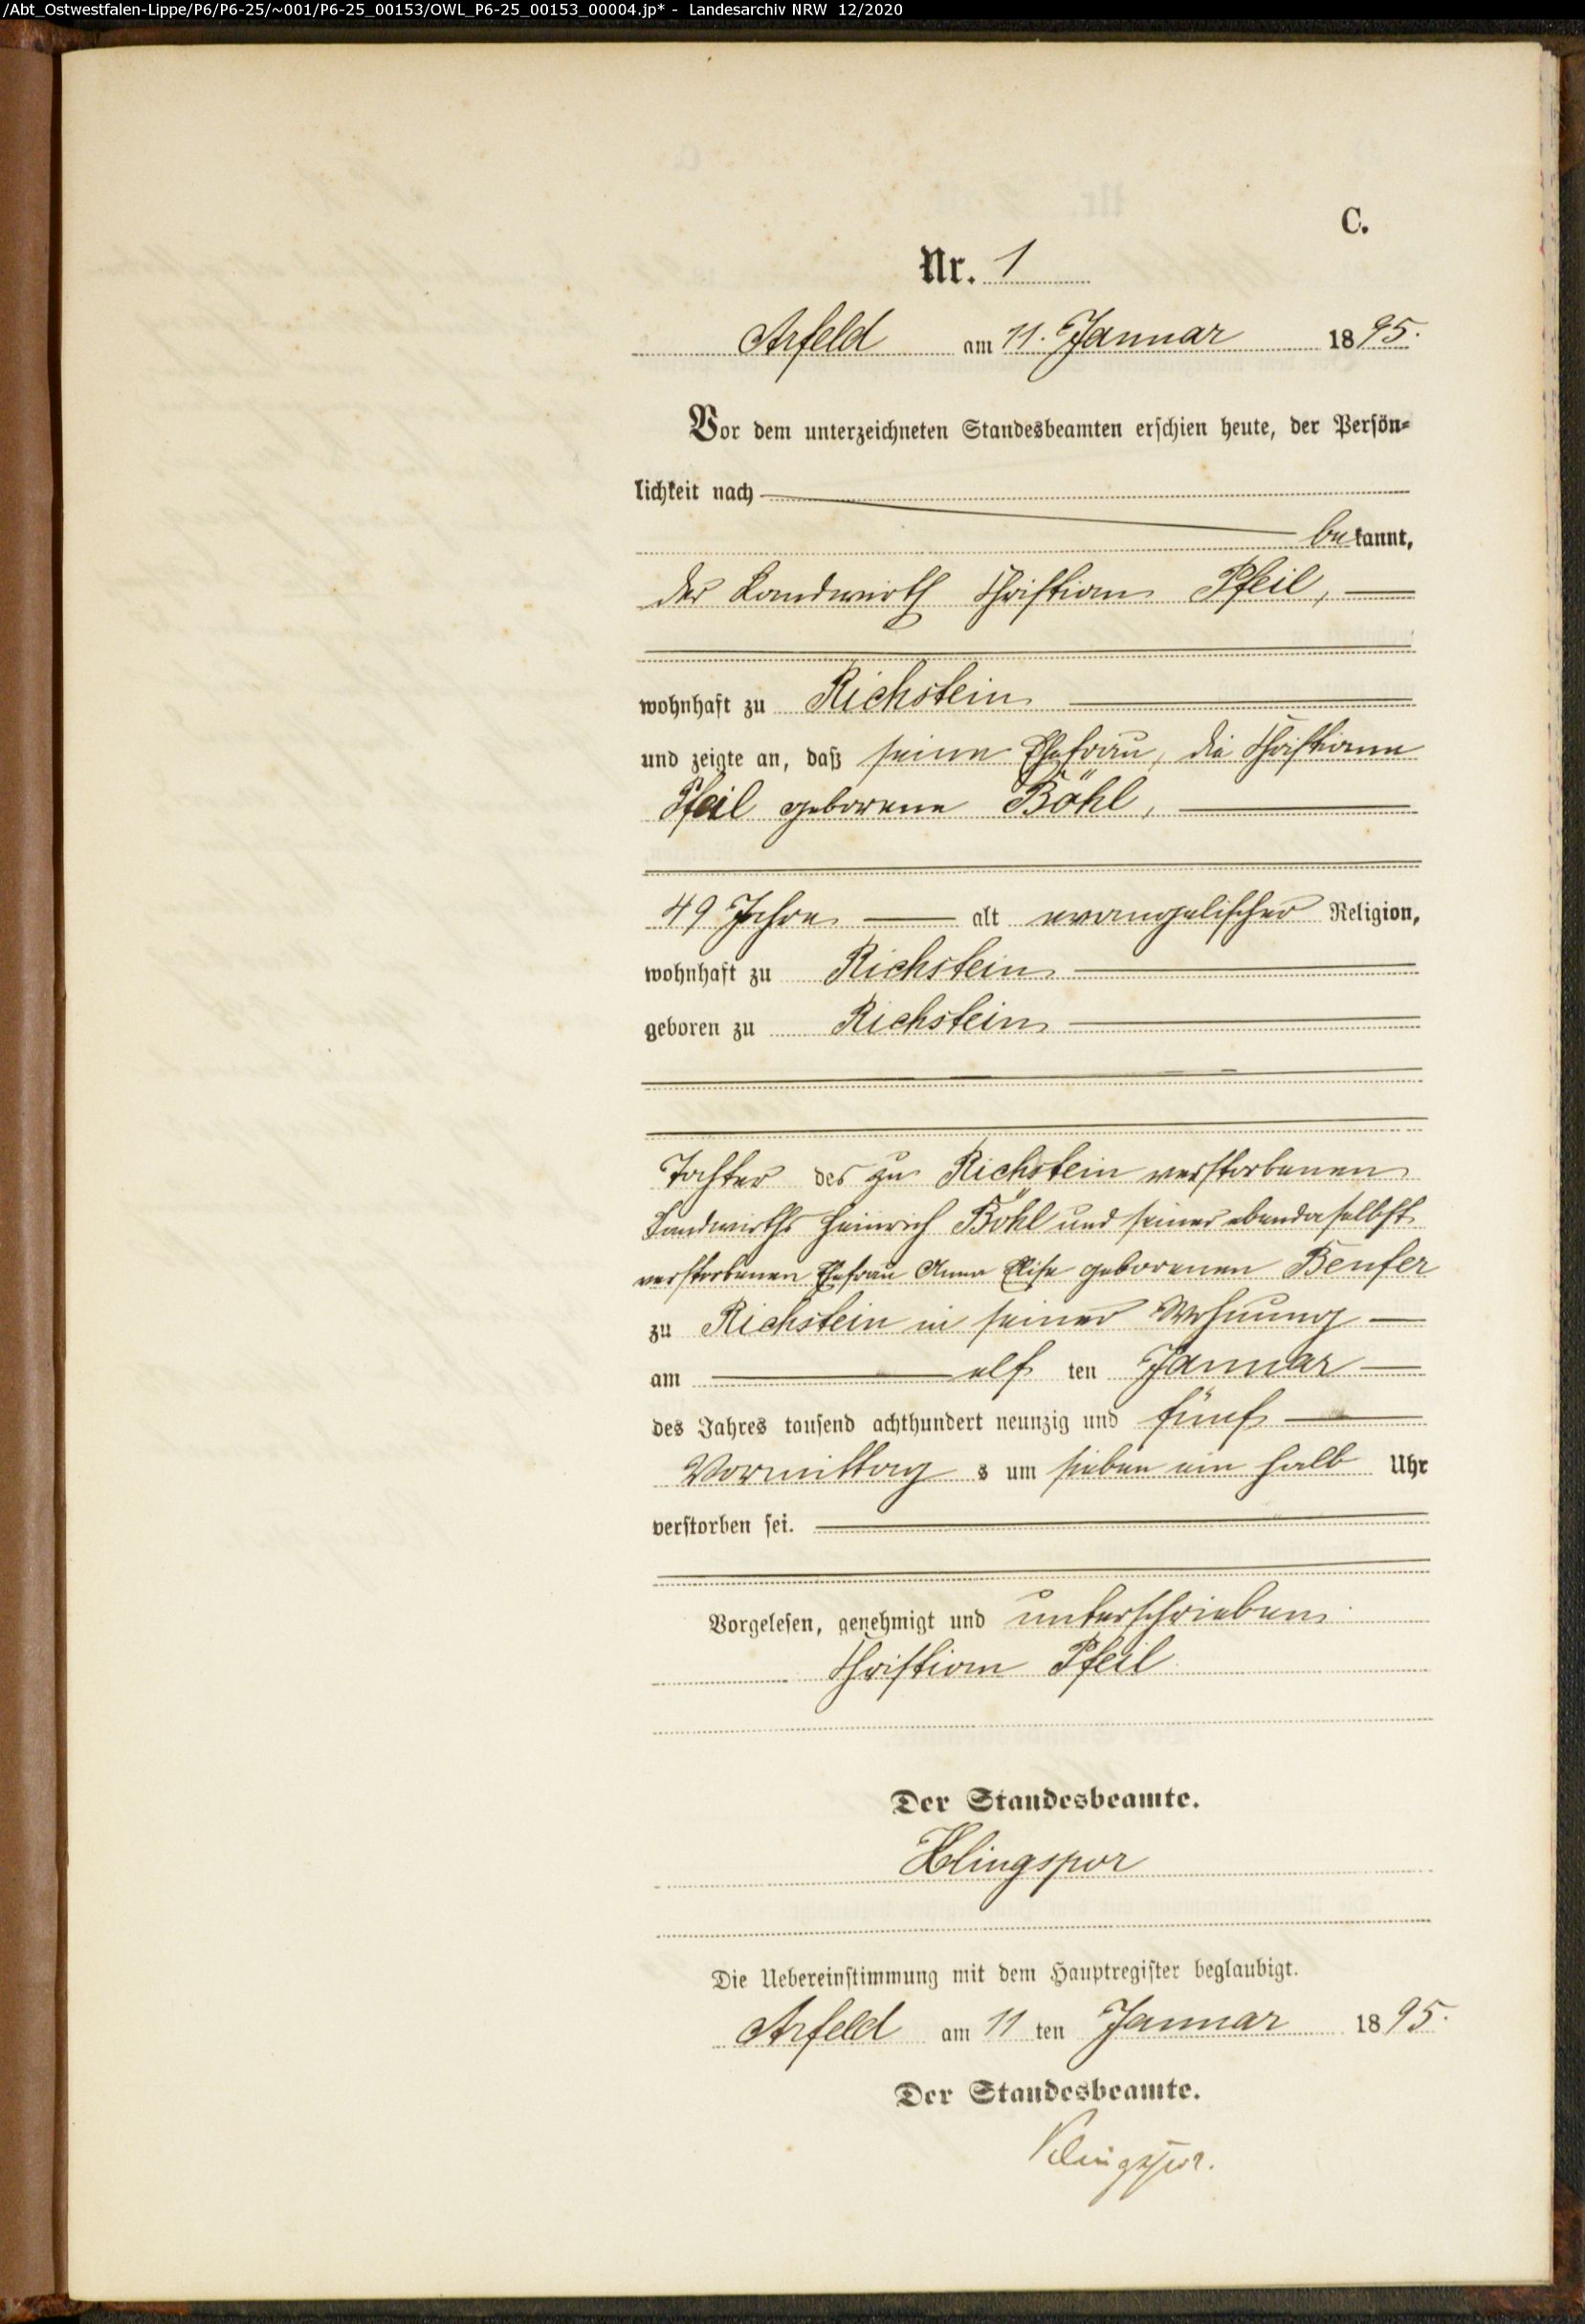 /Abt_Ostwestfalen-Lippe/P6/P6-25/~001/P6-25_00153/OWL_P6-25_00153_00004.jp* - Landesarchiv NRW 12/2020
C.
Nr. 1
Arfeld am 11. Januar 1895.
Vor dem unterzeichneten Standesbeamten erschien heute, der Persön-
lichkeit nach
bekannt,
der Landwirth Christian Pfeil,
wohnhaft zu Richstein
und zeigte an, daß seine Ehefrau, die Christiane
Pfeil geborene Böhl,
49 Jahre alt evangelischer Religion,
wohnhaft zu Richstein
geboren zu Richstein
Tochter des zu Richstein verstorbenen
Landwirths Heinrich Böhl und seiner ebendaselbst
verstorbenen Ehefrau Anna Elise geborenen Benfer
zu Richstein in seiner Wohnung
am elf ten Januar
des Jahres tausend achthundert neunzig und fünf
Vormittag s um sieben ein halb Uhr
verstorben sei.
Vorgelesen, genehmigt und unterschrieben.
Christian Pfeil
Der Standesbeamte.
Klingspor
Die Uebereinstimmung mit dem Hauptregister beglaubigt.
Arfeld am 11 ten Januar 1895.
Der Standesbeamte.
Klingspor.